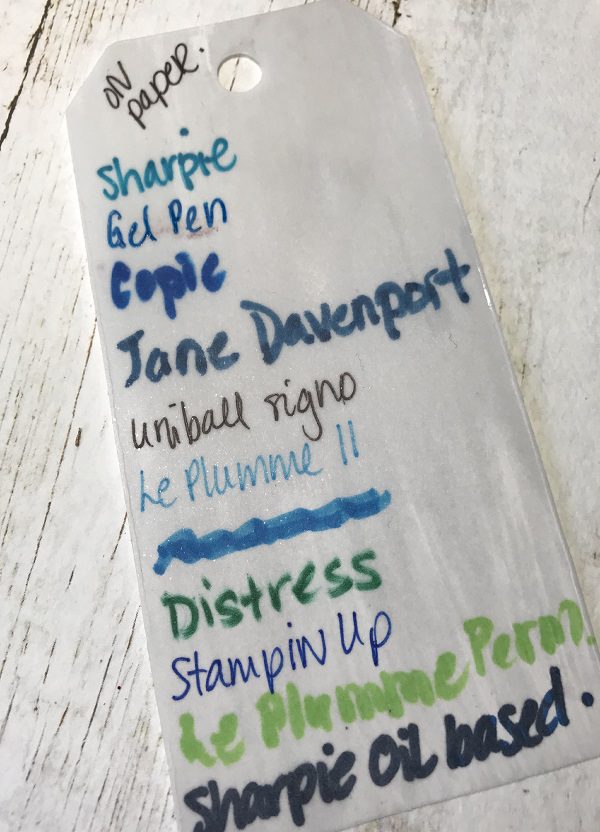 ON
paper.
Sharpie
Gel Pen
Copic
Jane Davenport
uniball signo
Le Plumme II
Distress
Stampin Up
Le Plumme Perm.
Sharpie Oil based.